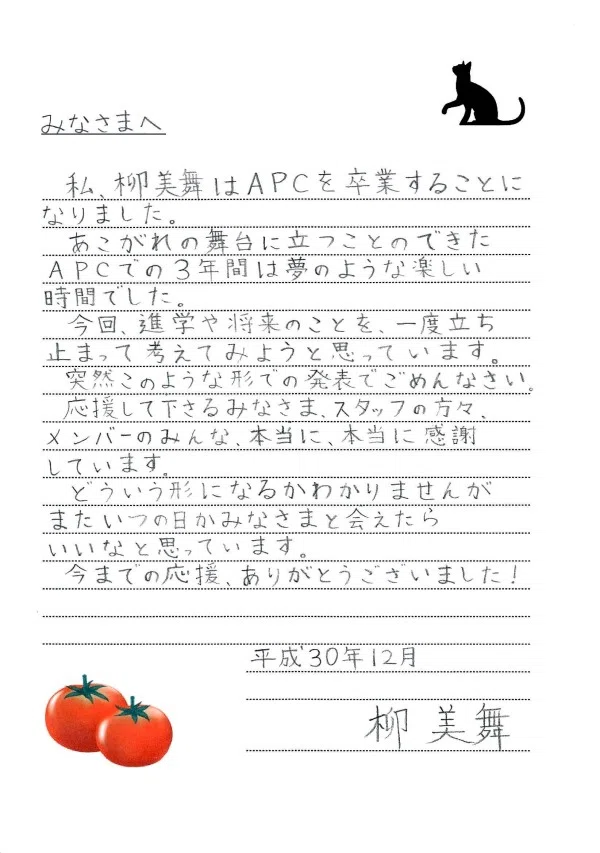 みなさまへ
私、柳美舞はAPCを卒業することに
なりました。
あこがれの舞台に立つことのできた
APCでの3年間は夢のような楽しい
時間でした。
今回、進学や将来のことを、一度立ち
止まって考えてみようと思っています。
突然このような形での発表でごめんなさい。
応援して下さるみなさま、スタッフの方々、
メンバーのみんな、本当に、本当に感謝
しています。
どういう形になるかわかりませんが
またいつの日かみなさまと会えたら
いいなと思っています。
今までの応援、ありがとうございました!
平成30年12月
柳 美舞